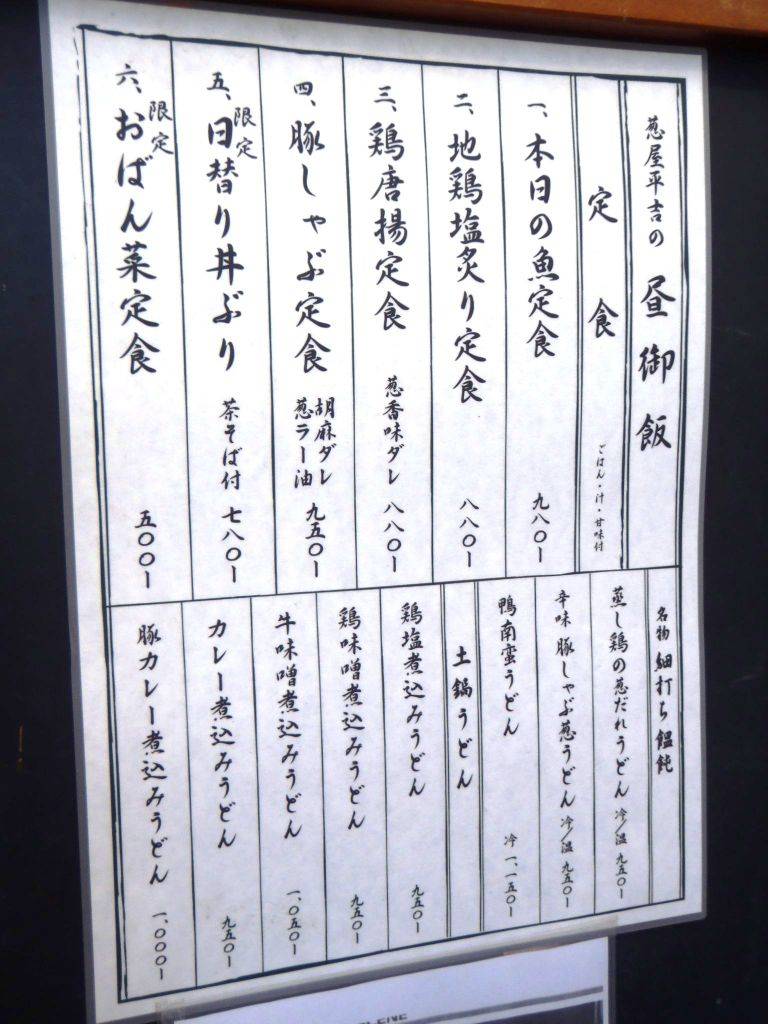 葱屋平吉の 昼御飯
定食 ごはん・汁・甘味付
一、本日の魚定食 九八〇ー
二、地鶏塩炙り定食 八八〇ー
三、鶏唐揚定食 葱香味ダレ 八八〇ー
四、豚しゃぶ定食 胡麻ダレ 葱ラー油 九五〇ー
五、限定 日替り丼ぶり 茶そば付 七八〇ー
六、限定 おばん菜定食 五〇〇ー
名物 細打ち饂飩
蒸し鶏の葱だれうどん 冷/温 九五〇ー
辛味 豚しゃぶ葱うどん 冷/温 九五〇ー
鴨南蛮うどん 冷 一、一五〇ー
土鍋うどん
鶏塩煮込みうどん 九五〇ー
鶏味噌煮込みうどん 九五〇ー
牛味噌煮込みうどん 一、〇五〇ー
カレー煮込みうどん 九五〇ー
豚カレー煮込みうどん 一、〇〇〇ー